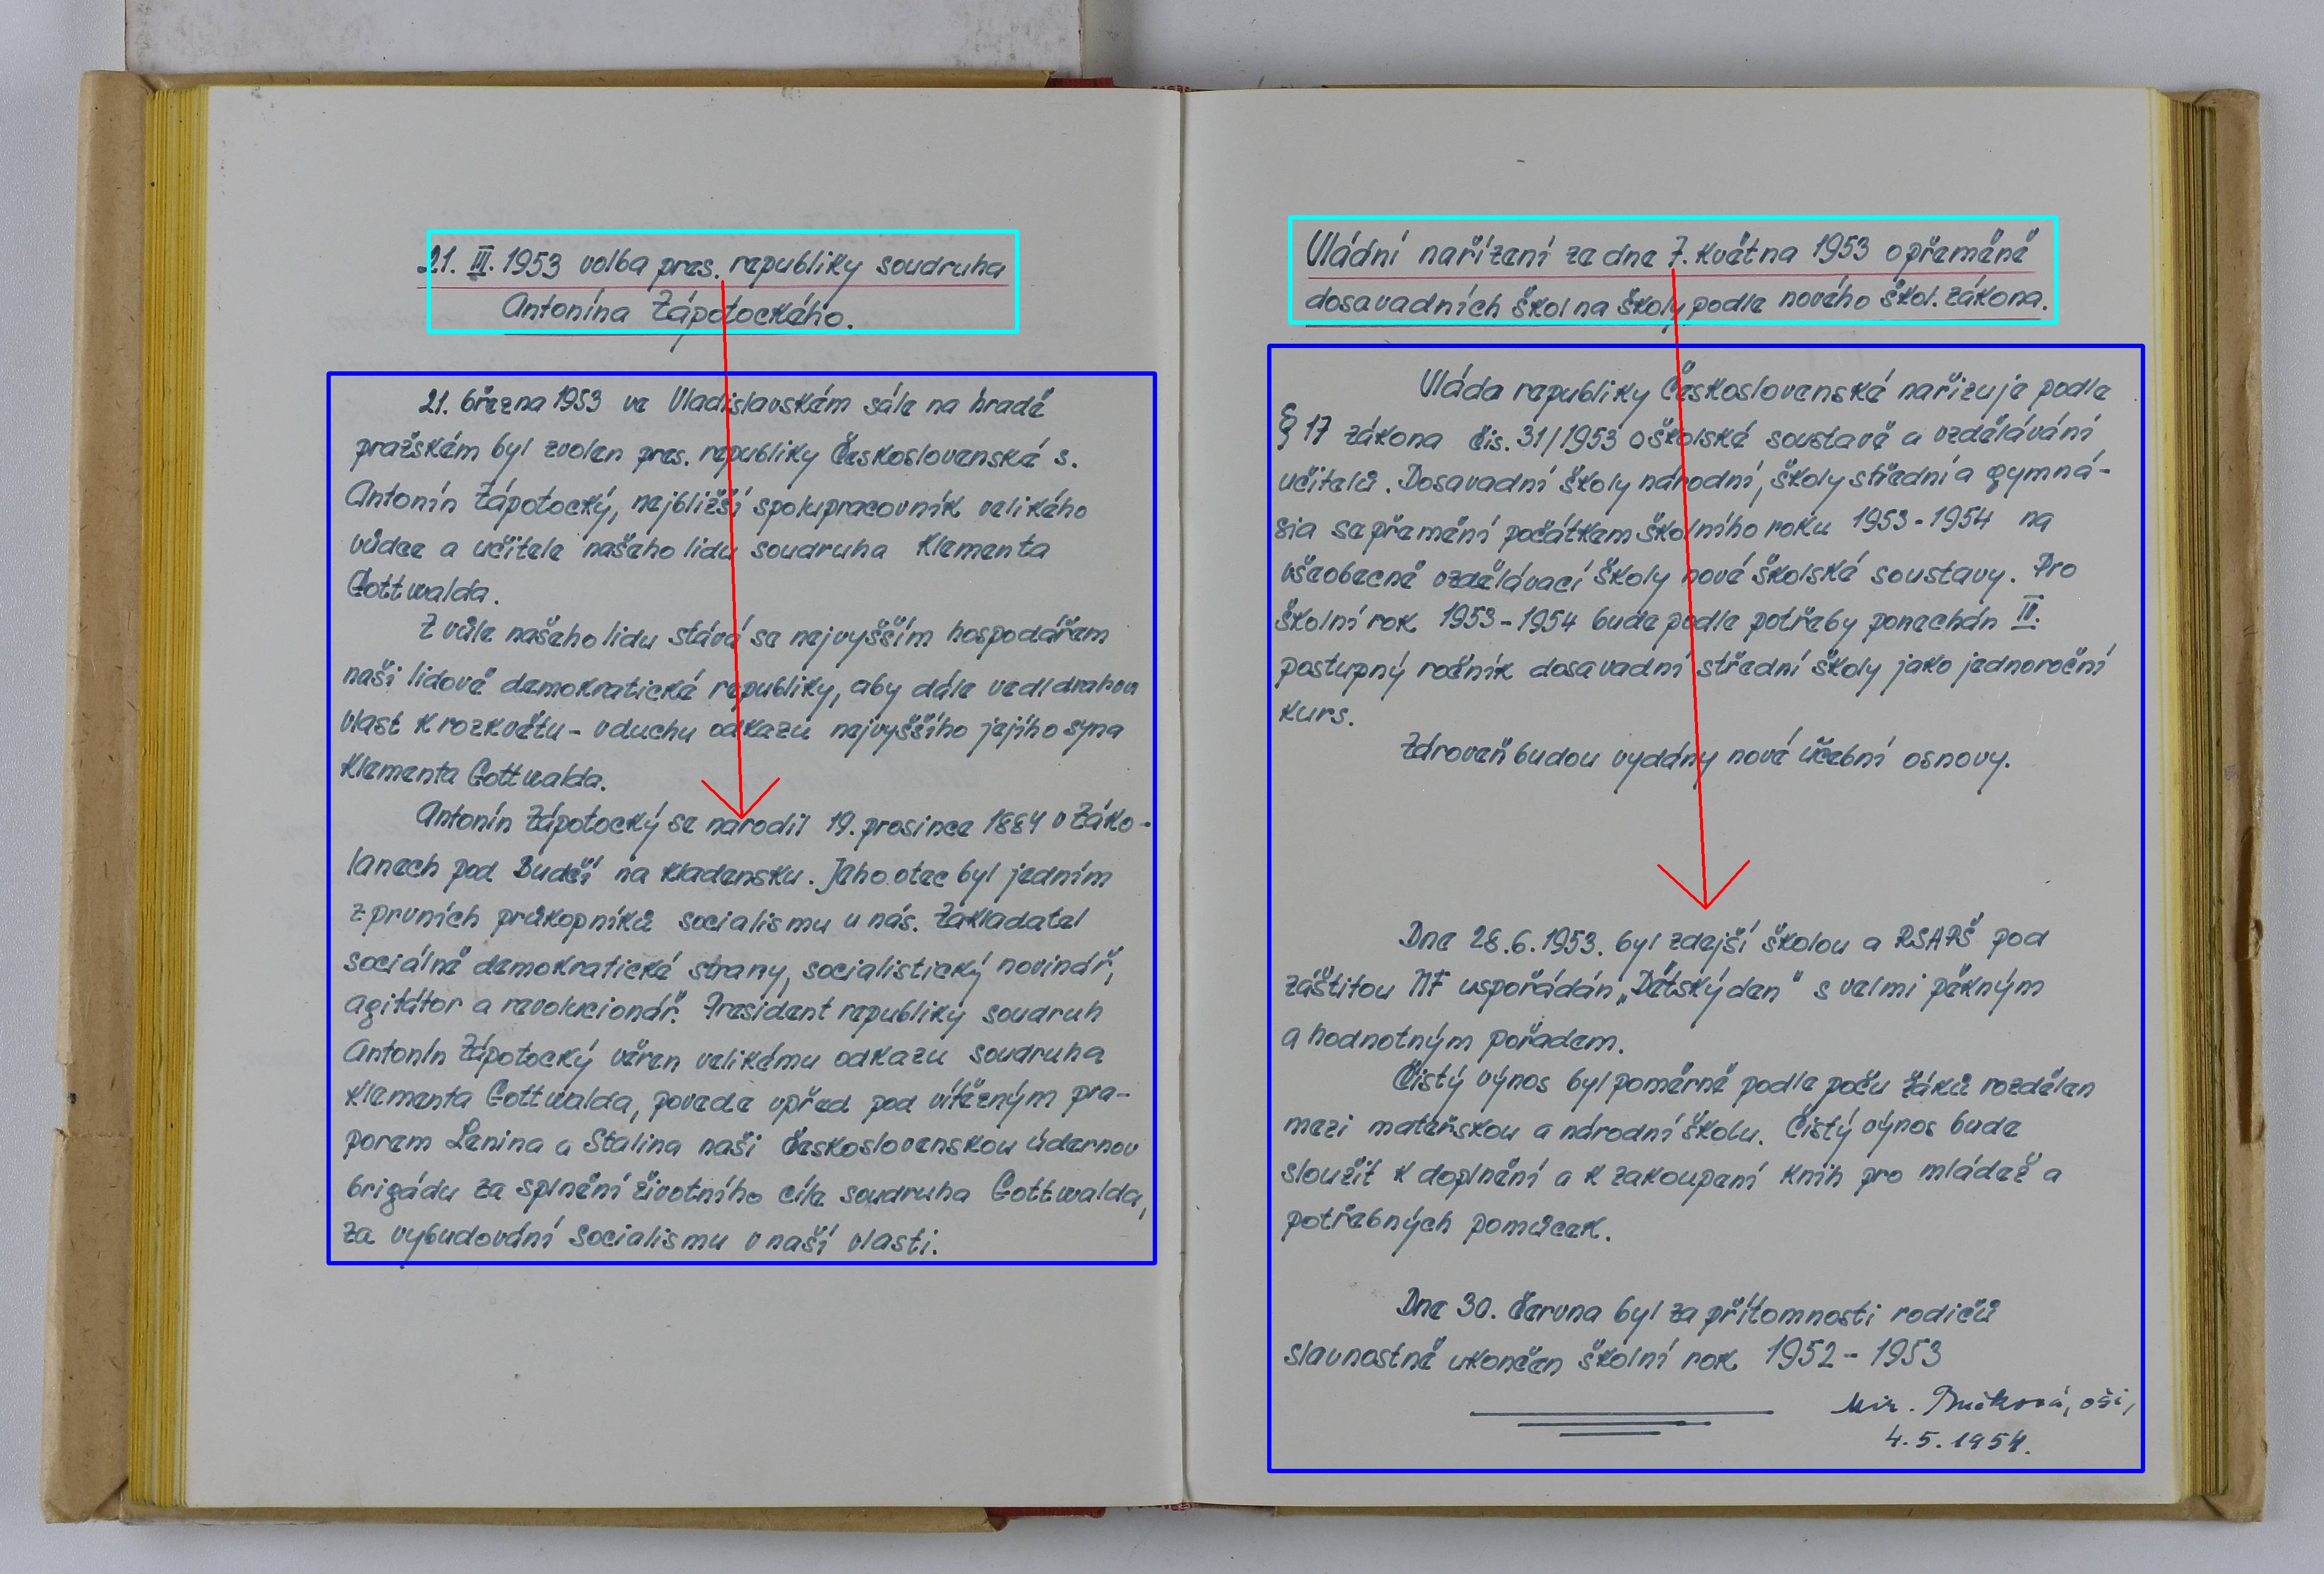 21. III. 1953 volba pres. republiky soudruha
Antonína Zápotockého.
21. března 1953 ve Vladislavském sále na hradě
pražském byl zvolen pres. republiky Československé s.
Antonín Zápotocký, nejbližší spolupracovník velikého
vůdce a učitele našeho lidu soudruha Klementa
Gottwalda.
Z vůle našeho lidu stává se nejvyšším hospodářem
naši lidově demokratické republiky, aby dále vedl drahou
vlast k rozkvětu - v duchu odkazu nejvyššího jejího syna
Klementa Gottwalda.
Antonín Zápotocký se narodil 19. prosince 1884 v Záko-
lanech pod Budčí na Kladensku. Jeho otec byl jedním
z prvních průkopníků socialismu u nás. Zakladatel
sociálně demokratické strany, socialistický novinář,
agitátor a revolucionář. President republiky soudruh
Antonín Zápotocký věren velikému odkazu soudruha
Klementa Gottwalda, povede vpřed pod vítězným pra-
porem Lenina a Stalina naši československou údernou
brigádu za splnění životního cíle soudruha Gottwalda,
za vybudování socialismu v naší vlasti.
Vládní nařízení ze dne 7. května 1953 o přeměně
dosavadních škol na školy podle nového škol. zákona.
Vláda republiky Československé nařizuje podle
§ 17 zákona čis. 31/1953 o školské soustavě a vzdělávání
učitelů. Dosavadní školy národní, školy střední a gymná-
sia se přemění počátkem školního roku 1953-1954 na
všeobecně vzdělávací školy nové školské soustavy. Pro
školní rok 1953-1954 bude podle potřeby ponechán II.
postupný ročník dosavadní střední školy jako jednoroční
kurs.
Zdroveň budou vydány nové učební osnovy.
Dne 28.6.1953. byl zdejší školou a RSAPŠ pod
záštitou NF uspořádán „Dětský den" s velmi pěkným
a hodnotným pořadem.
Čistý výnos byl poměrně podle poču žáků rozdělen
mezi mateřskou a národní školu. Čistý výnos bude
sloužit k doplnění a k zakoupení knih pro mládež a
potřebných pomůcek.
Dne 30. června byl za přítomnosti rodičů
slavnostně ukončen školní rok 1952-1953
Mir.
4.5.1954.